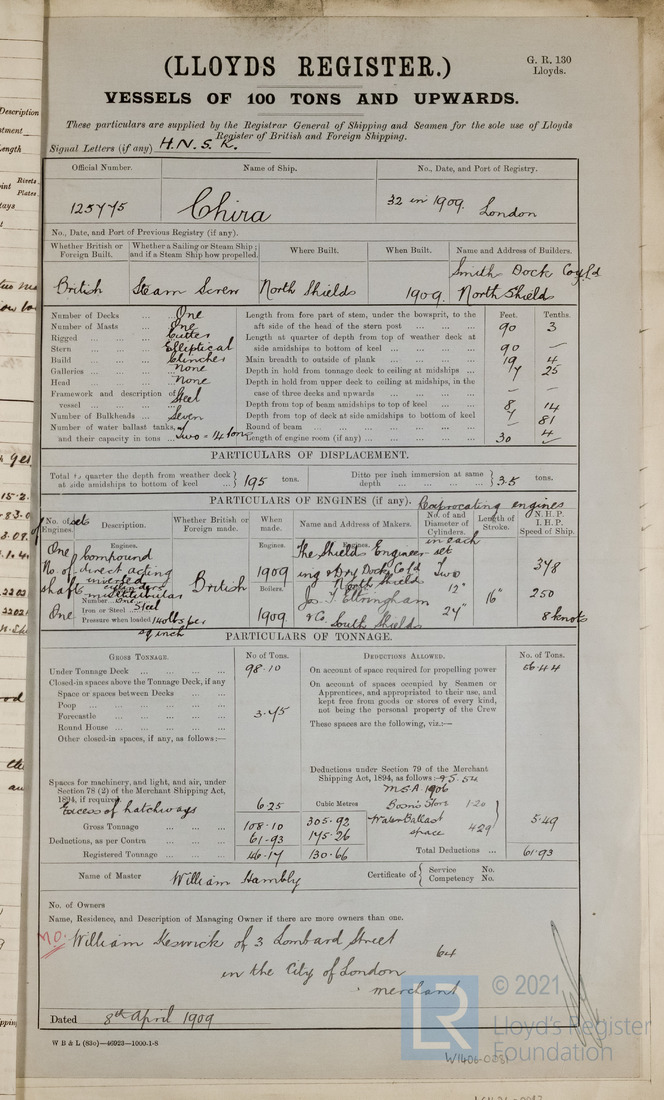 (LLOYDS REGISTER.)
G. R. 130
Lloyds.
VESSELS OF 100 TONS AND UPWARDS.
These particulars are supplied by the Registrar General of Shipping and Seamen for the sole use of Lloyds
Register of British and Foreign Shipping.
Signal Letters (if any) H.N.S.K.
Official Number. Name of Ship. No., Date, and Port of Registry.
125775 Chira 32 in 1909. London
No., Date, and Port of Previous Registry (if any).
Whether British or Foreign Built. Whether a Sailing or Steam Ship; and if a Steam Ship how propelled. Where Built. When Built. Name and Address of Builders.
British Steam Screw North Shields 1909. Smith Dock Coy Ld North Shields
Number of Decks ... One
Number of Masts ... One
Rigged ... Cutter
Stern ... Elliptical
Build ... Clincher
Galleries ... None
Head ... None
Framework and description of vessel ... Steel
Number of Bulkheads ... Seven
Number of water ballast tanks, and their capacity in tons ... Two = 14 tons
Feet. Tenths.
Length from fore part of stem, under the bowsprit, to the aft side of the head of the stern post ... 90 3
Length at quarter of depth from top of weather deck at side amidships to bottom of keel ... 90 —
Main breadth to outside of plank ... 19 4
Depth in hold from tonnage deck to ceiling at midships ... 25
Depth in hold from upper deck to ceiling at midships, in the case of three decks and upwards ... — —
Depth from top of beam amidships to top of keel ... 8 14
Depth from top of deck at side amidships to bottom of keel 81
Round of beam ... — 4
Length of engine room (if any) ... 30 —
PARTICULARS OF DISPLACEMENT.
Total to quarter the depth from weather deck at side amidships to bottom of keel ... 195 tons. Ditto per inch immersion at same depth ... 3.5 tons.
PARTICULARS OF ENGINES (if any). Reciprocating engines
No. of sets of Engines. Description. Whether British or Foreign made. When made. Name and Address of Makers. No. of and Diameter of Cylinders. in each set Length of Stroke. N.H.P. I.H.P. Speed of Ship.
Engines. Engines. Engines.
One Compound direct acting inverted cylinders British 1909 The Shields Engineering & Dry Dock Co Ld North Shields Two
No. of shafts
One
Boilers.
multitubular
Number One
Iron or Steel Steel
Pressure when loaded 140 lbs per sq inch
1909 Jos. T. Eltringham & Co. South Shields
12" 24" 16"
250
8 knots
PARTICULARS OF TONNAGE.
GROSS TONNAGE. No of Tons. DEDUCTIONS ALLOWED. No. of Tons.
Under Tonnage Deck ... 98.10
Closed-in spaces above the Tonnage Deck, if any
Space or spaces between Decks ...
Poop ...
Forecastle ... 3.75
Round House ...
Other closed-in spaces, if any, as follows:—
Spaces for machinery, and light, and air, under Section 78 (2) of the Merchant Shipping Act, 1894, if required.
Excess of hatchways 6.25
Gross Tonnage ... 108.10
Deductions, as per Contra ... 61.93
Registered Tonnage ... 46.17
Cubic Metres
305.92
175.26
130.66
On account of space required for propelling power 56.44
On account of spaces occupied by Seamen or Apprentices, and appropriated to their use, and kept free from goods or stores of every kind, not being the personal property of the Crew
These spaces are the following, viz.:—
Deductions under Section 79 of the Merchant Shipping Act, 1894, as follows:— S. 54
M.S.A. 1906
Bosn's Store 1.20
Water Ballast space 4.29
5.49
Total Deductions ... 61.93
Name of Master William Hambly Certificate of Service No. Competency No.
No. of Owners
Name, Residence, and Description of Managing Owner if there are more owners than one.
MO. William Keswick of 3 Lombard Street
64
in the City of London
merchant
Dated 8th April 1909
W B & L (83o)—46923—1000-1-8
LR
© 2021
Lloyd's Register
Foundation
W1406-0081